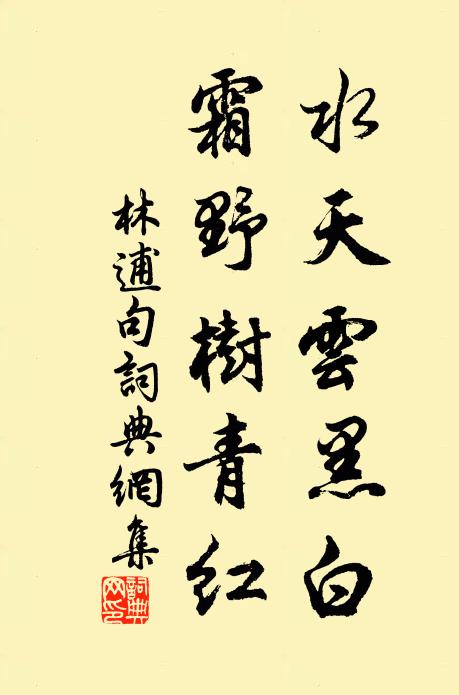 水天雲黑白
霜野樹青紅
林逋句詞典網集
詞典網印